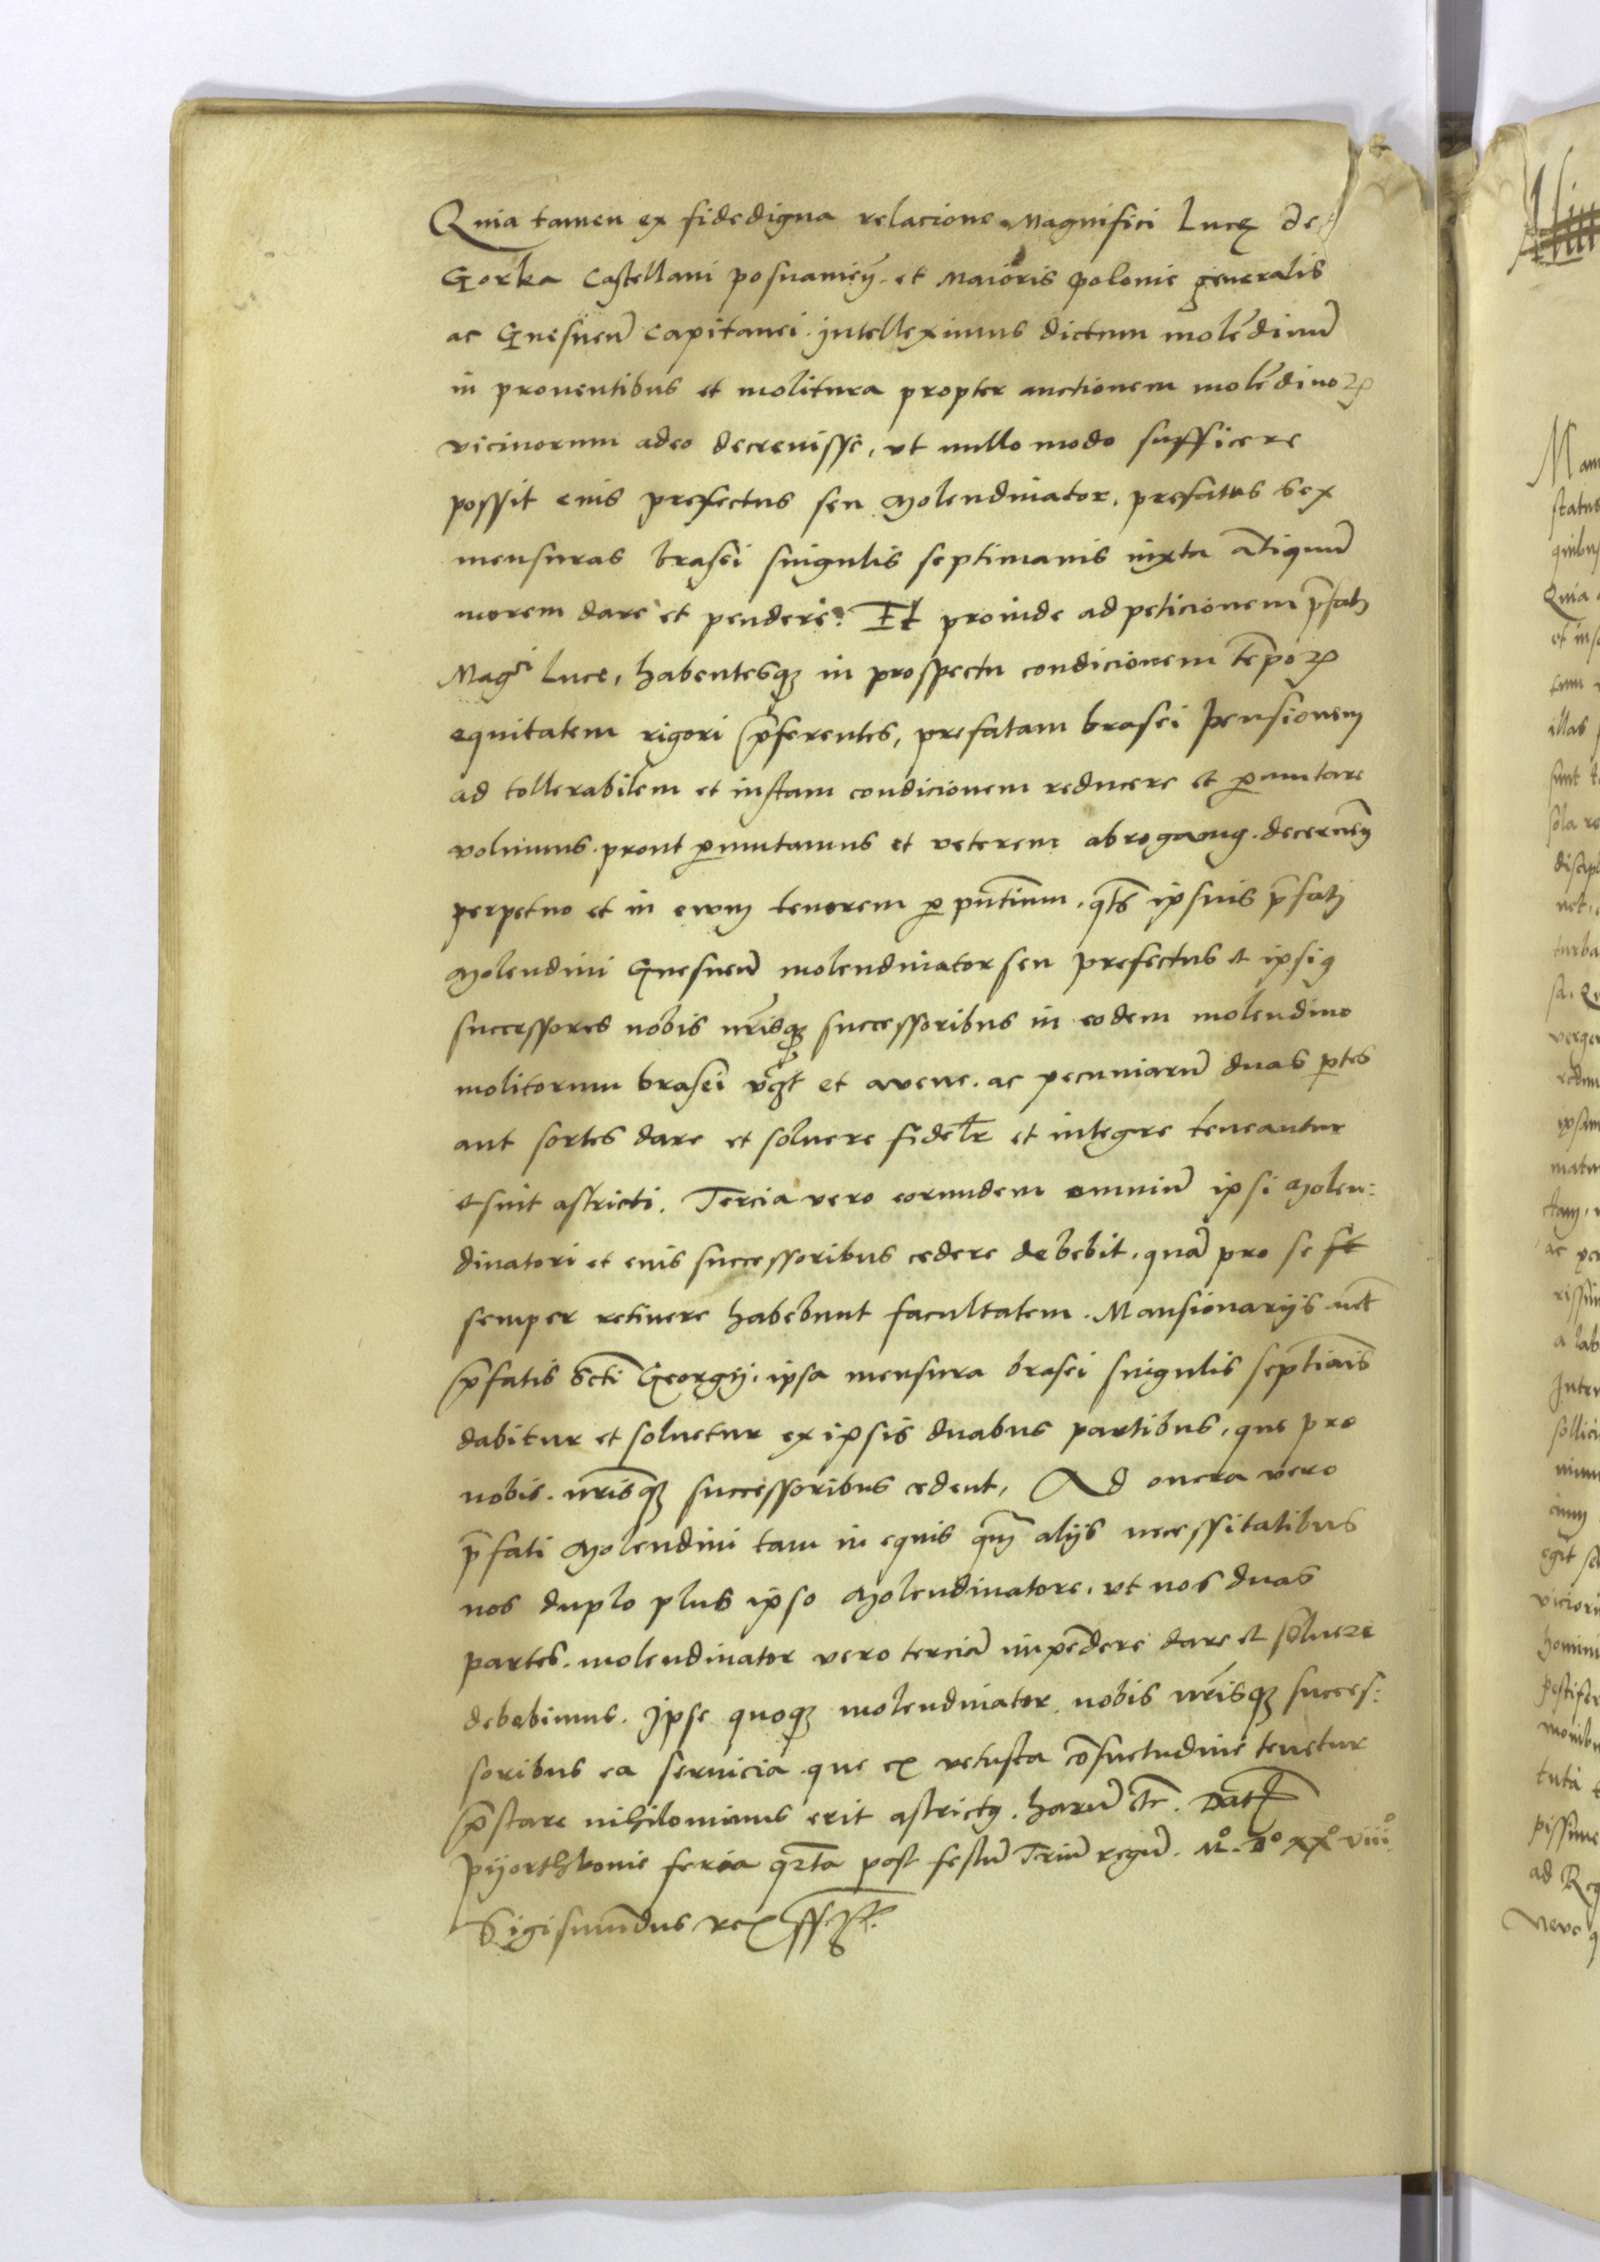 Quia tamen ex fidedigna relacione Magnifici Lucę de
Gorka Castellani posnanien̄ et Maioris polonie generalis
ac Gnesnen̄ Capitanei intelleximus dictum molēdinū
in prouentibus et molitura propter auctionem molēdinoꝝ
vicinorum adeo decreuisse, vt nullo modo sufficere
possit eius prefectus seu Molendinator, prefatas sex
mensuras brasei singulis septimanis iuxta ātiquū
morem dare et pendere. Et proinde ad peticionem p̄fati
Magci Luce, habentesqꝫ in prospectu condicionem tēpoꝝ
equitatem rigori p̄ferentes, prefatam brasei pensionem
ad tollerabilem et iustam condicionem reducere et ꝑmutare
voluimus prout ꝑmutamus et veterem abrogamꝰ decernen̄
perpetuo et in ewm tenorem ꝑ pn̄tium, qts ipsius p̄fati
Molendini Gnesnen̄ molendinator seu prefectus et ipsiꝰ
successores nobis nr̄isqꝫ successoribus in eodem molendino
molitorum brasei et avene ac pecuniarū duas ꝑtes
aut sortes dare et soluere fidelr et integre teneantur
et sint astricti. Tercia vero eorundem omniū ipsi Molen:
dinatori et eius successoribus cedere debebit, quā pro se
semper retinere habebunt facultatem. Mansionarijs
p̄fatis Scti Georgij, ipsa mensura brasei singulis septīais
dabitur et soluetur ex ipsis duabus partibus, que pro
nobis nr̄isqꝫ successoribus cedent, Ad onera vero
p̄fati Molendini tam in equis qm̄ alijs necessitatibus
nos duplo plus ipso Molendinatore, vt nos duas
partes, molendinator vero terciā impēdere dare et soluere
debebimus. Ipse quoqꝫ molendinator nobis nr̄isqꝫ succes:
soribus ea seruicia que ex vetusta cōsuetudine tenetur
p̄stare nihilominus erit astrictꝰ. harū etc. Dat
Pyorthkouie feria qrta post festū Triū regū. Mo. Do xxo viiio
Sigismūdus rex sspt.